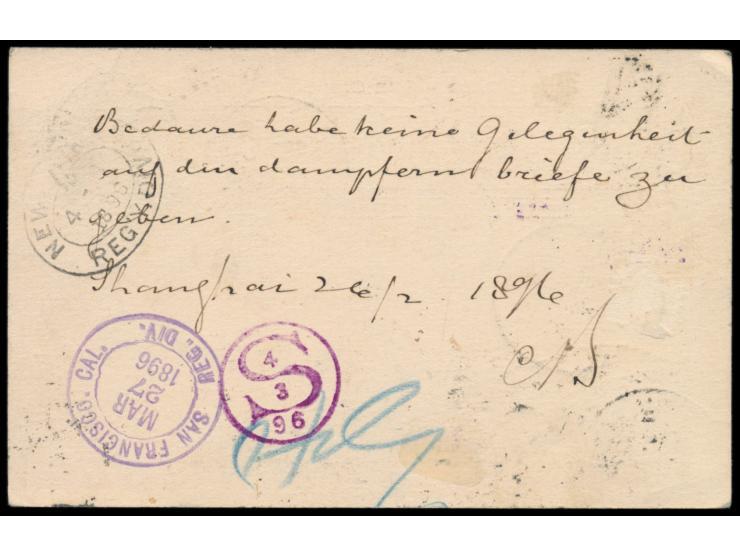 Bedaure habe keine Gelegenheit
auf den dampfern briefe zu
geben.
Shanghai 26/2 1896
NEW
4
1896
REG'Y DIV
SAN FRANCISCO. CAL.
MAR
27
1896
REG. DIV.
S
4
3
96